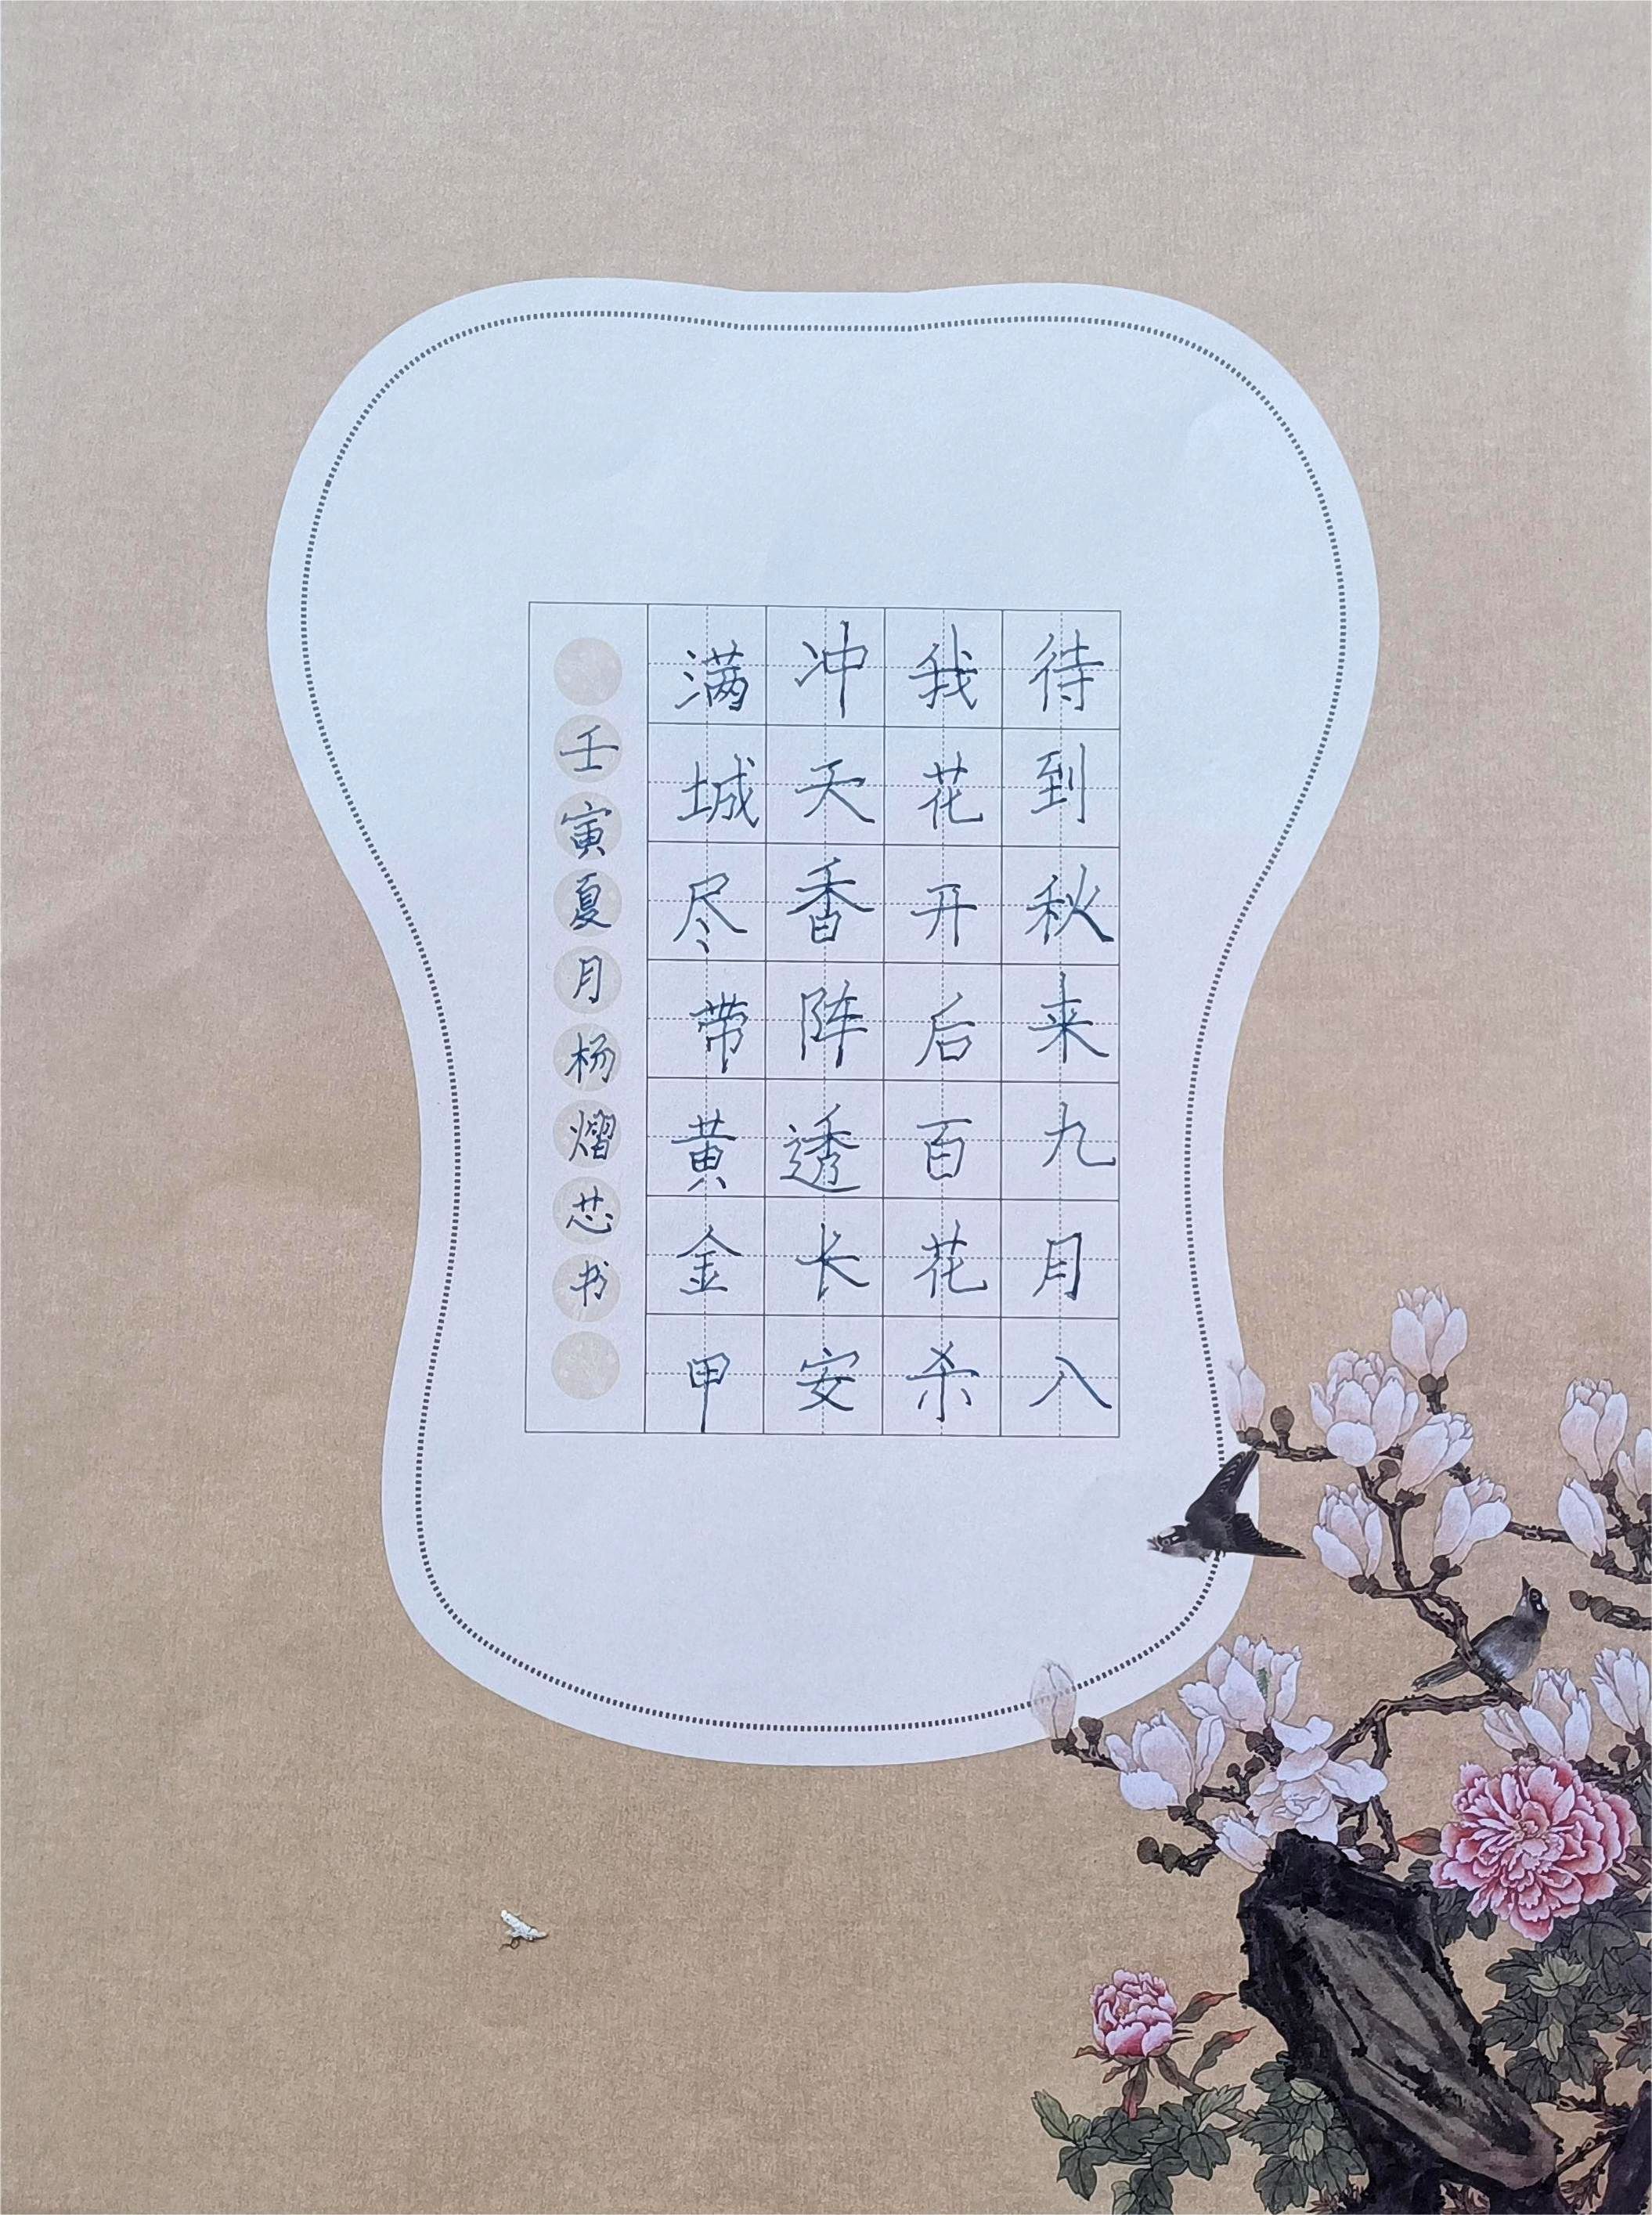 待到秋来九月八
我花开后百花杀
冲天香阵透长安
满城尽带黄金甲
壬寅夏月杨熠芯书